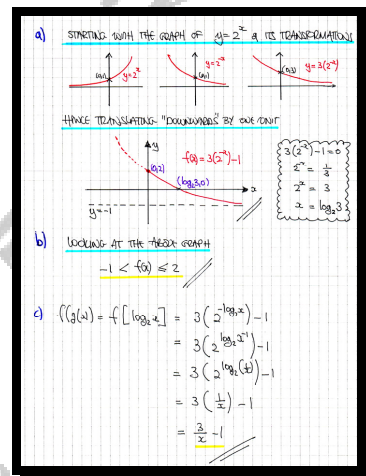 a) STARTING WITH THE GRAPH OF y = 2^x & ITS TRANSFORMATIONS
(0,1) y=2^x
(0,1) y=2^-x
(0,3) y=3(2^-x)
HENCE TRANSLATING "DOWNWARDS" BY ONE UNIT
y
(0,2) f(x) = 3(2^-x) -1
(log₂3,0) x
y=-1
3(2^-x)-1=0
2^-x = 1/3
2^x = 3
x = log₂3
b) LOOKING AT THE ABOVE GRAPH
-1 < f(x) ≤ 2
c) f(g(x)) = f[log₂x] = 3(2^-log₂x) -1
= 3(2^log₂x^-1) -1
= 3(2^log₂(1/x)) -1
= 3(1/x) -1
= 3/x -1